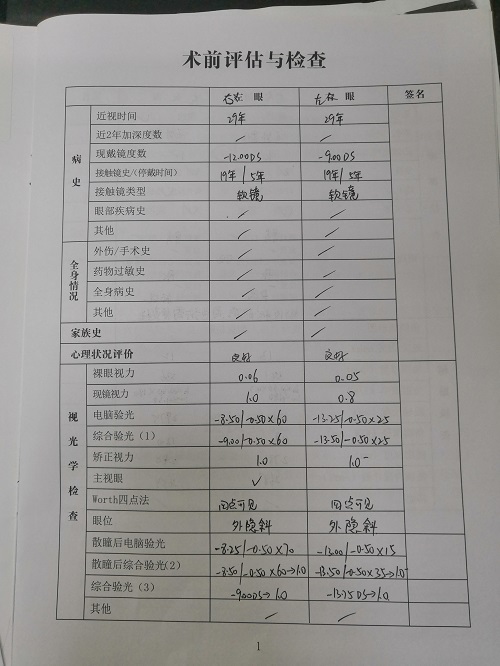 术前评估与检查
眼 眼 签名
病史
近视时间 29年 29年
近2年加深度数 / /
现戴镜度数 -12.00DS -9.00DS
接触镜史/(停戴时间) 19年/5年 19年/5年
接触镜类型 软镜 软镜
眼部疾病史 / /
其他 / /
全身情况
外伤/手术史 / /
药物过敏史 / /
全身病史 / /
其他 / /
家族史 / /
心理状况评价 良好 良好
视光学检查
裸眼视力 0.06 0.05
现镜视力 1.0 0.8
电脑验光 -8.50/-0.50×60 -13.25/-0.50×25
综合验光(1) -9.00/-0.50×60 -13.50/-0.50×25
矫正视力 1.0 1.0-
主视眼 ✓
Worth四点法 四点可见 四点可见
眼位 外隐斜 外隐斜
散瞳后电脑验光 -8.25/-0.50×70 -13.00/-0.50×15
散瞳后综合验光(2) -8.50/-0.50×60→1.0 -13.50/-0.50×35→1.0-
综合验光(3) -9.00DS→1.0 -13.75DS→1.0
其他 / /
1